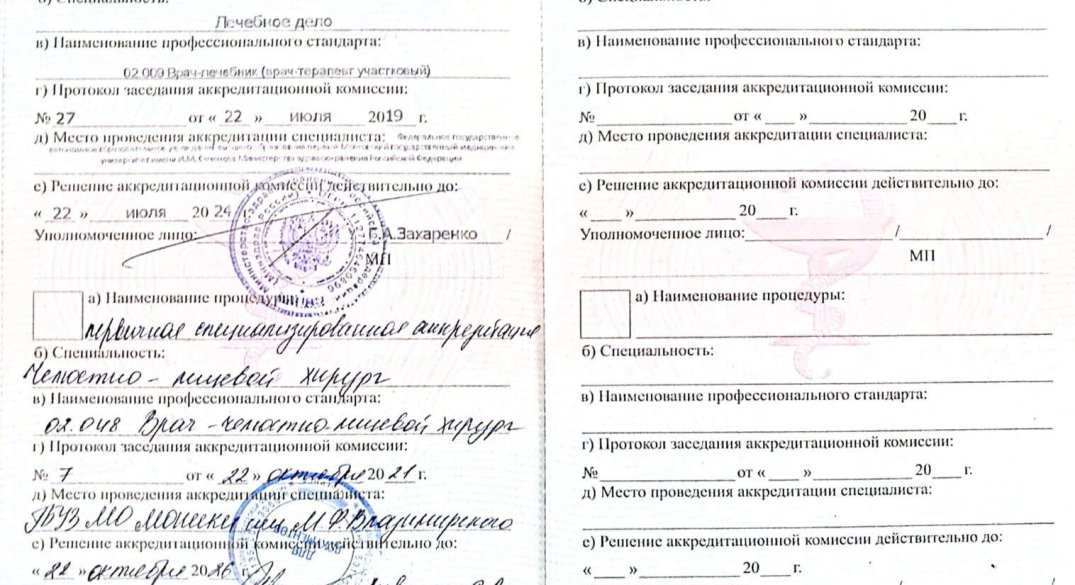 б) Специальность:
Лечебное дело
в) Наименование профессионального стандарта:
02.009 Врач-лечебник (врач-терапевт участковый)
г) Протокол заседания аккредитационной комиссии:
№ 27 от « 22 » июля 2019 г.
д) Место проведения аккредитации специалиста: Федеральное государственное
автономное образовательное учреждение высшего образования первый Московский государственный медицинский
университет имени И.М. Сеченова Министерство здравоохранения Российской Федерации
е) Решение аккредитационной комиссии действительно до:
« 22 » июля 20 24 г.
Уполномоченное лицо: А.Захаренко /
МП
а) Наименование процедуры:
первичная специализированная аккредитация
б) Специальность:
Челюстно - лицевой хирург
в) Наименование профессионального стандарта:
02.048 Врач - челюстно-лицевой хирург
г) Протокол заседания аккредитационной комиссии:
№ 7 от « 22 » октября 20 21 г.
д) Место проведения аккредитации специалиста:
ГБУЗ МО МОНИКИ им М.Ф. Владимирского
е) Решение аккредитационной комиссии действительно до:
« 22 » октября 20 26 г.
для документов
б) Специальность:
в) Наименование профессионального стандарта:
г) Протокол заседания аккредитационной комиссии:
№ от « » 20 г.
д) Место проведения аккредитации специалиста:
е) Решение аккредитационной комиссии действительно до:
« » 20 г.
Уполномоченное лицо: / /
МП
а) Наименование процедуры:
б) Специальность:
в) Наименование профессионального стандарта:
г) Протокол заседания аккредитационной комиссии:
№ от « » 20 г.
д) Место проведения аккредитации специалиста:
е) Решение аккредитационной комиссии действительно до:
« » 20 г.